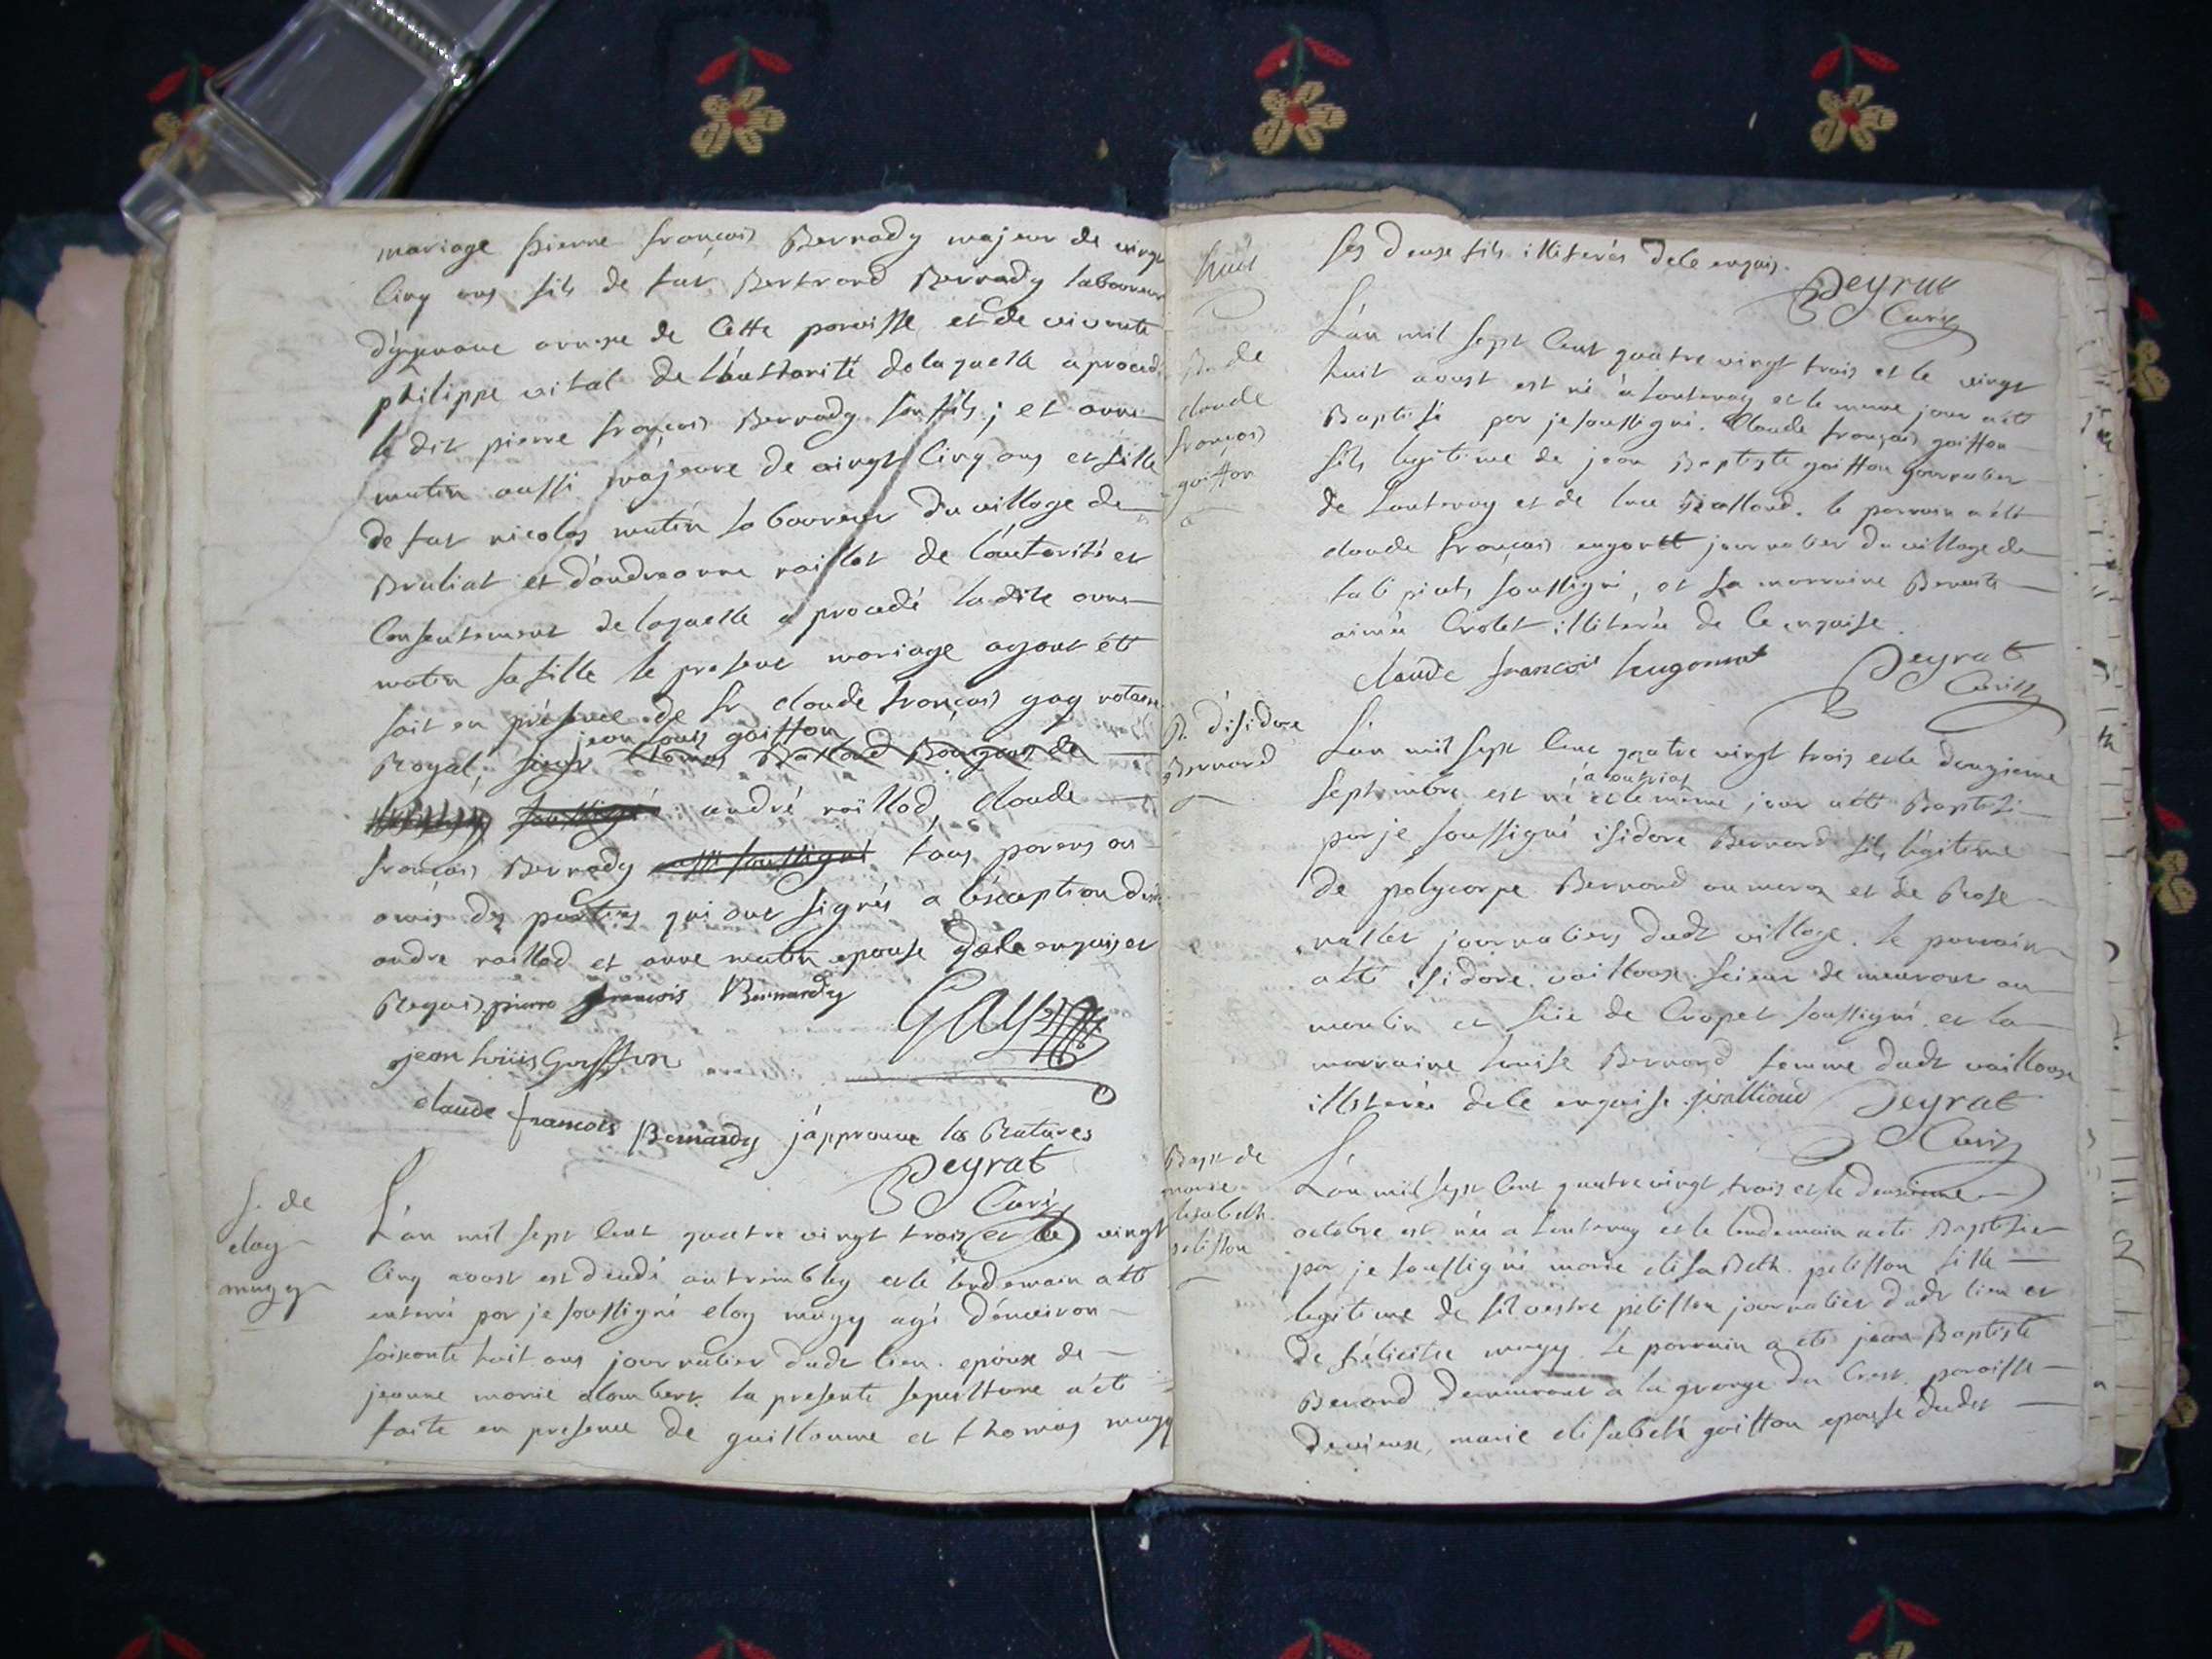 mariage pierre françois Bernady majeur de vingt
cinq ans fils de fut Bertrand Bernady laboureur
annexe de cette paroisse et de vivante
philippe vital de l'authorité de laquelle a procedé
le dit pierre françois Bernady son fils; et anne
mutin aussi majeure de vingt cinq ans et fille
de fut nicolas mutin laboureur du village de
Bruliat et d'andreanne raillot de l'autorité et
consentement de laquelle a procedé ladite anne
mutin sa fille le present mariage ayant été
fait en présence de Sr claude françois gay notaire
jean louis goiffon
Royal, sieur thomas Balland Bourgeois de
soussigné andré raillod, claude
françois Bernady aussi soussigné tous parens ou
amis des parties qui ont signés a l'exception
andre raillod et anne mutin epouse de ce enquis et
Requis. pierre françois Bernardy Gay
jean loüis Goyffon
claude francois Bernardy j'approuve les Ratures
Peyrat
Curé
S. de
eloy
mugy
L'an mil sept cent quatre vingt trois et le vingt
cinq aoust est decedé au trembley et le lendemain a été
enterré par je soussigné eloy mugy agé d'environ
soixante huit ans journalier dudt lieu. epoux de
jeanne marie alombert. la presente sepulture a été
faite en presence de guillaume et thomas mugy
ses deux fils illiterés de ce enquis.
Peyrat
Curé
huit
B. de
claude
françois
goiffon
L'an mil sept cent quatre vingt trois et le vingt
huit aoust est né à lantenay et le meme jour a été
Baptisé par je soussigné. Claude françois goiffon
fils legitime de jean Baptiste goiffon journalier
de Lantenay et de luce Balland. le parrain a été
claude françois journalier du village de
soussigné, et la marraine Benoite
aimée Crolet illiterée de ce enquise.
claude francois hugonnet Peyrat
Curé
B. d'isidore
Bernard
L'an mil sept cent quatre vingt trois et le douzieme
a outriat
septembre est né et le même jour a été Baptisé
par je soussigné isidore Bernard fils légitime
de polycarpe Bernard et de Rose
journaliers dudt village. le parrain
a été isidore vailloux scieur demeurant au
moulin et scie de Cropet soussigné et la
marraine louise Bernard femme dudt vailloux
illiterée de ce enquise. Peyrat
Curé
Bapt de
marie
elisabeth
pelisson
L'an mil sept cent quatre vingt trois et le deuxieme
octobre est née a Lantenay et le lendemain a été Baptisée
par je soussigné marie elisabeth pelisson fille
legitime de silvestre pelisson journalier dudt lieu et
de félicitée mugy. Le parrain a été jean Baptiste
Benard demeurant à la grange du Crest paroisse
de vieux, marie elisabeth goiffon epouse dudit